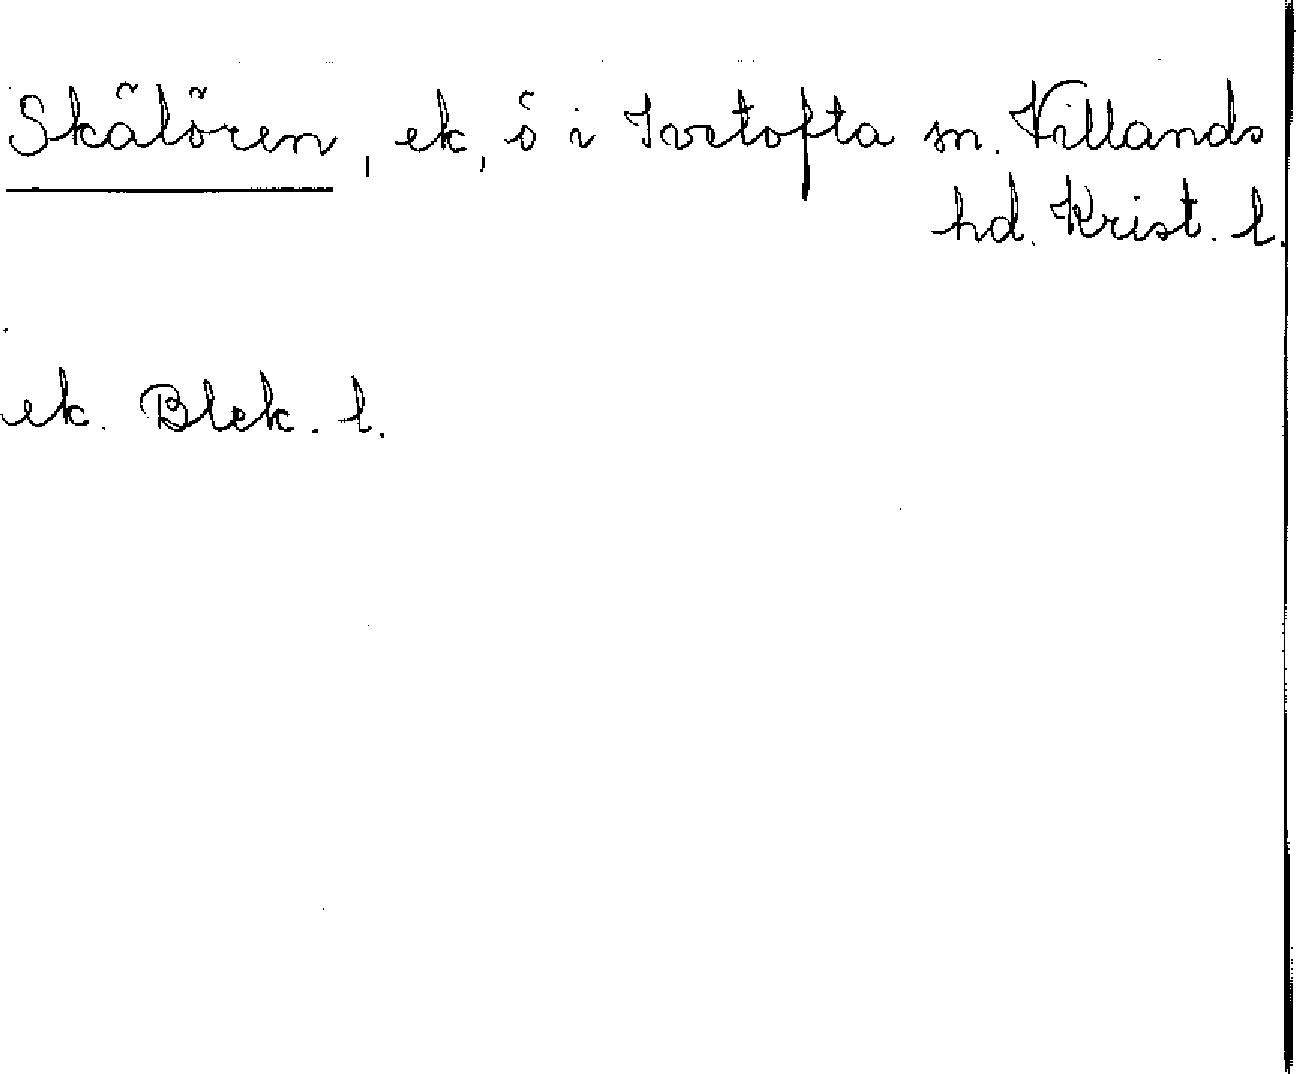 Skälören, ek, ö i Ivetofta sn. Villands
hd. Krist. l.
ek. Blek. l.